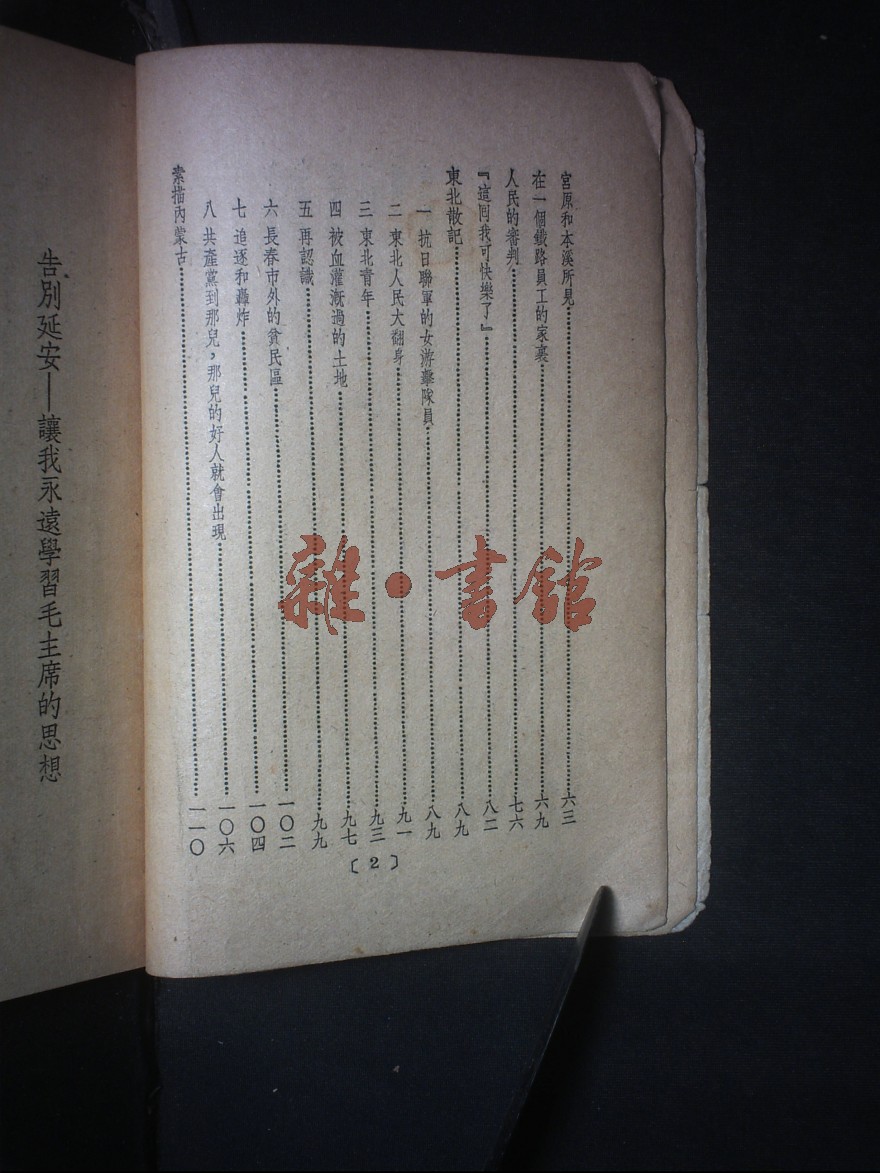 宮原和本溪所見……六三
在一個鐵路員工的家裏……六九
人民的審判……七六
『這回我可快樂了』……八二
東北散記……八九
一 抗日聯軍的女游擊隊員……八九
二 東北人民大翻身……九一
三 東北青年……九三
四 被血灌漑過的土地……九七
五 再認識……九九
六 長春市外的貧民區……一〇二
七 追逐和轟炸……一〇四
八 共產黨到那兒，那兒的好人就會出現……一〇六
素描內蒙古……一一〇
〔2〕
告別延安—讓我永遠學習毛主席的思想
雜·書館